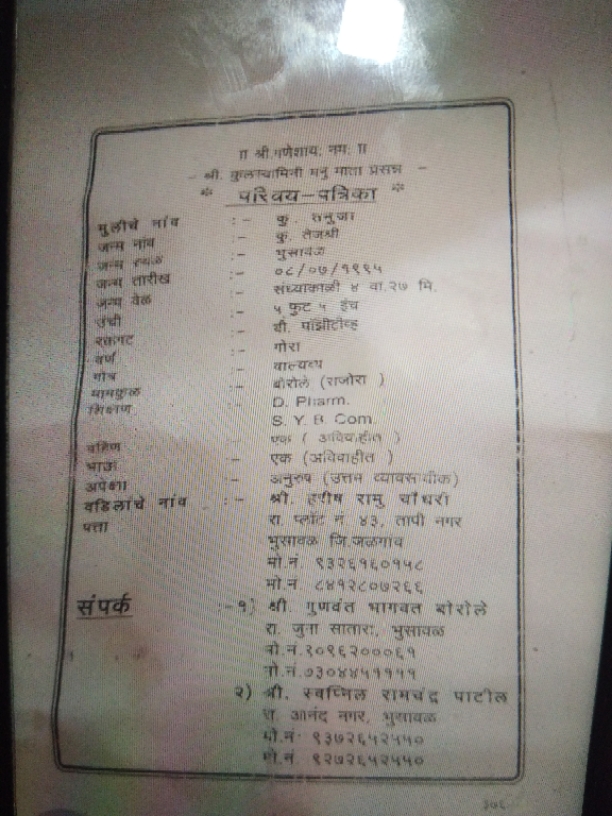 ॥ श्री गणेशाय: नम: ॥
- श्री. कुलस्वामिनी मनु माता प्रसन्न -
* परिचय-पत्रिका *
मुलीचे नांव :- कु. तनुजा
जन्म नांव :- कु. तेजश्री
जन्म स्थळ :- भुसावळ
जन्म तारीख :- ०८/०७/१९९५
जन्म वेळ :- संध्याकाळी ४ वा.२७ मि.
उंची :- ५ फुट ५ इंच
रक्तगट :- बी. पॉझीटीव्ह
वर्ण :- गोरा
गोत्र :- वाल्यव्य
मामकुळ :- बोरोले (राजोरा )
शिक्षण :- D. Pharm.
S. Y. B. Com.
बहिण :- एक ( अविवाहीत )
भाऊ :- एक (अविवाहीत )
अपेक्षा :- अनुरुप (उत्तम व्यावसायीक)
वडिलांचे नांव :- श्री. हरीष रामु चौधरी
पत्ता रा. प्लॉट नं ४३, तापी नगर
भुसावळ जि.जळगाव
मो.नं. ९३२६१६०१५८
मो.नं. ८४१२८०७२६६
संपर्क :-१) श्री. गुणवंत भागवत बोरोले
रा. जुना सातारा, भुसावळ
मो.नं.
मो.नं.७३०४४५१११५
२) श्री. स्वप्निल रामचंद्र पाटील
रा. आनंद नगर, भुसावळ
मो.नं. ९३७२६५२५५०
मो.नं. ९२७२६५२५५०
३७६